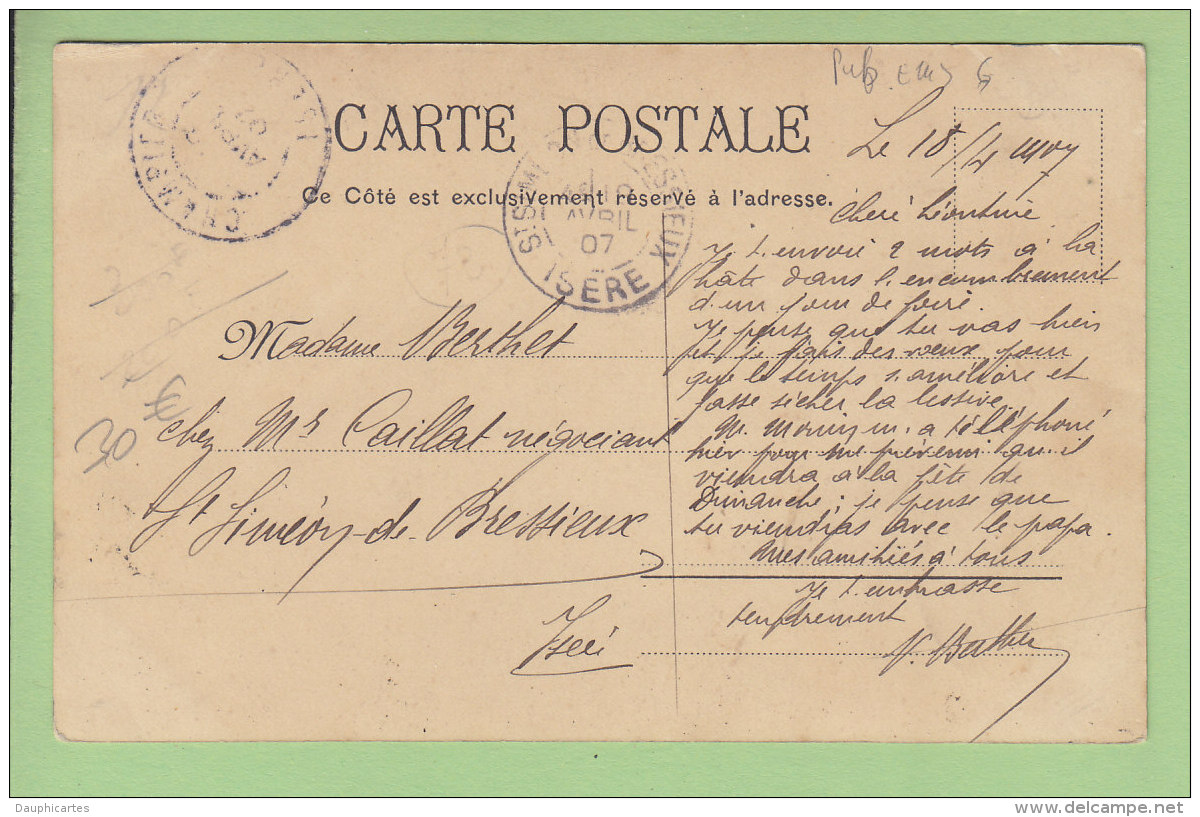 CARTE POSTALE
Ce Côté est exclusivement réservé à l'adresse.
CHAMPIER
ISÈRE
AVRIL
07
ISERE
Madame Berthet
chez Mr Caillat négociant
St Siméon-de-Bressieux
Isère
30
Le 18/4 1907
Cheré Léontine
Je t'envoi 2 mots à la
hâte dans l'encombrement
d'un jour de foire.
Je pense que tu vas bien
et je fais des vœux pour
que le temps s'améliore et
fasse sécher la lessive.
M. a téléphoné
hier pour me prévenir qu'il
viendra à la fête de
Dimanche; je pense que
tu viendras avec le papa.
Mes amitiés à tous
Je t'embrasse
tendrement
Dauphicartes
delcampe.net